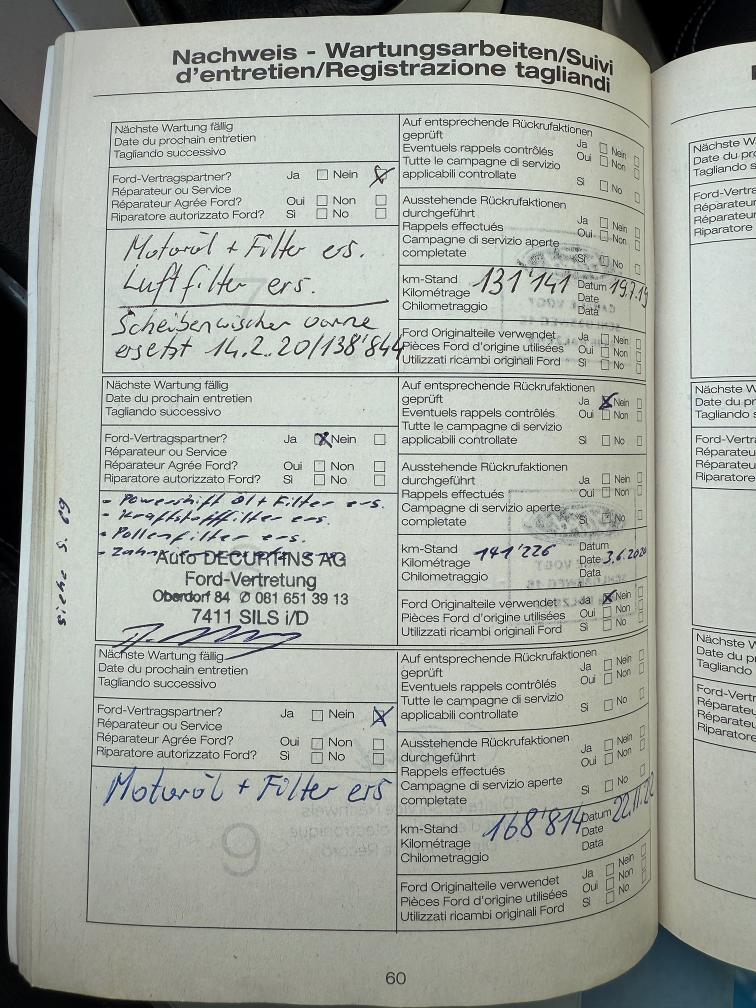 Nachweis - Wartungsarbeiten/Suivi
d'entretien/Registrazione tagliandi
Nächste Wartung fällig
Date du prochain entretien
Tagliando successivo
Ford-Vertragspartner? Ja Nein
Réparateur ou Service
Réparateur Agrée Ford? Oui Non
Riparatore autorizzato Ford? Sì No
Motoröl + Filter ers.
Luftfilter ers.
Scheibenwischer vorne
ersetzt 14.2.20/138'844
Auf entsprechende Rückrufaktionen
geprüft Ja Nein
Eventuels rappels contrôlés Oui Non
Tutte le campagne di servizio
applicabili controllate Sì No
Ausstehende Rückrufaktionen
durchgeführt Ja Nein
Rappels effectués Oui Non
Campagne di servizio aperte
completate Sì No
km-Stand 131'141 Datum 19.7.19
Kilométrage Date
Chilometraggio Data
Ford Originalteile verwendet Ja Nein
Pièces Ford d'origine utilisées Oui Non
Utilizzati ricambi originali Ford Sì No
Nächste Wartung fällig
Date du prochain entretien
Tagliando successivo
Ford-Vertragspartner? Ja Nein
Réparateur ou Service
Réparateur Agrée Ford? Oui Non
Riparatore autorizzato Ford? Sì No
- Powershift Öl + Filter ers.
- Kraftstofffilter ers.
- Pollenfilter ers.
Auto DECURTINS AG
Ford-Vertretung
Oberdorf 84 ✆ 081 651 39 13
7411 SILS i/D
siehe S. 69
Auf entsprechende Rückrufaktionen
geprüft Ja Nein
Eventuels rappels contrôlés Oui Non
Tutte le campagne di servizio
applicabili controllate Sì No
Ausstehende Rückrufaktionen
durchgeführt Ja Nein
Rappels effectués Oui Non
Campagne di servizio aperte
completate Sì No
km-Stand 141'226 Datum
Kilométrage Date 3.6.2020
Chilometraggio Data
Ford Originalteile verwendet Ja Nein
Pièces Ford d'origine utilisées Oui Non
Utilizzati ricambi originali Ford Sì No
Nächste Wartung fällig
Date du prochain entretien
Tagliando successivo
Ford-Vertragspartner? Ja Nein
Réparateur ou Service
Réparateur Agrée Ford? Oui Non
Riparatore autorizzato Ford? Sì No
Motoröl + Filter ers
Auf entsprechende Rückrufaktionen
geprüft Ja Nein
Eventuels rappels contrôlés Oui Non
Tutte le campagne di servizio
applicabili controllate Sì No
Ausstehende Rückrufaktionen
durchgeführt Ja Nein
Rappels effectués Oui Non
Campagne di servizio aperte
completate Sì No
km-Stand 168'814 Datum 22.11.22
Kilométrage Date
Chilometraggio Data
Ford Originalteile verwendet Ja Nein
Pièces Ford d'origine utilisées Oui Non
Utilizzati ricambi originali Ford Sì No
60